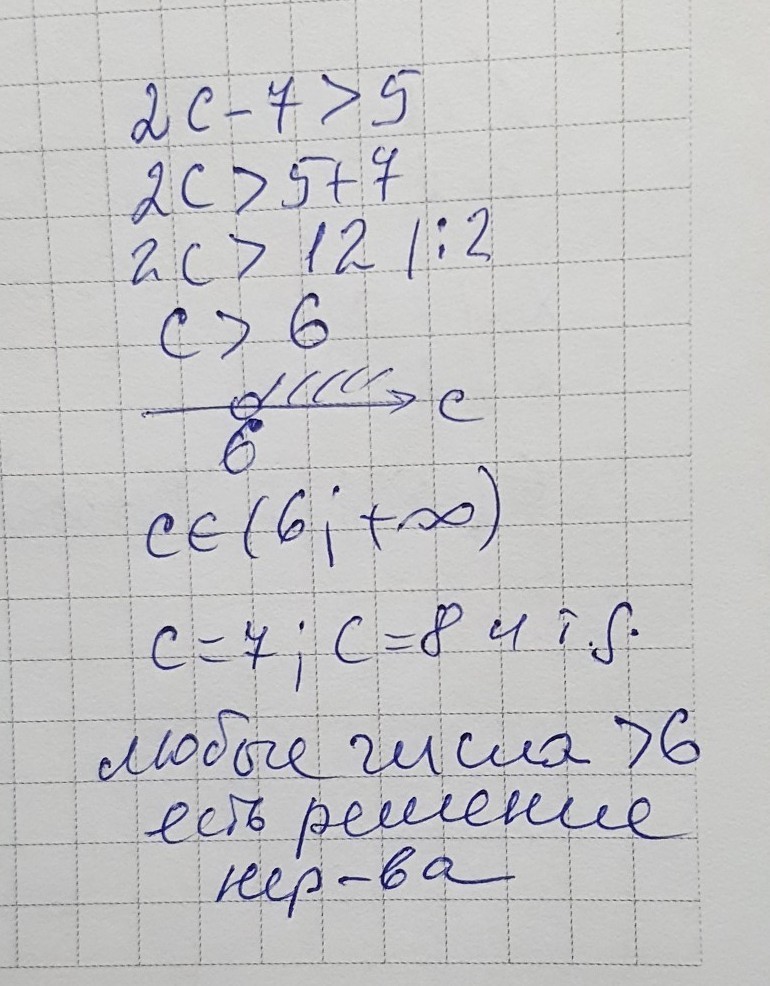 2c-7>5
2c>5+7
2c>12 |:2
c>6
c
6
c∈(6;+∞)
c=7; c=8 и т.д.
любые числа >6
есть решение
нер-ва